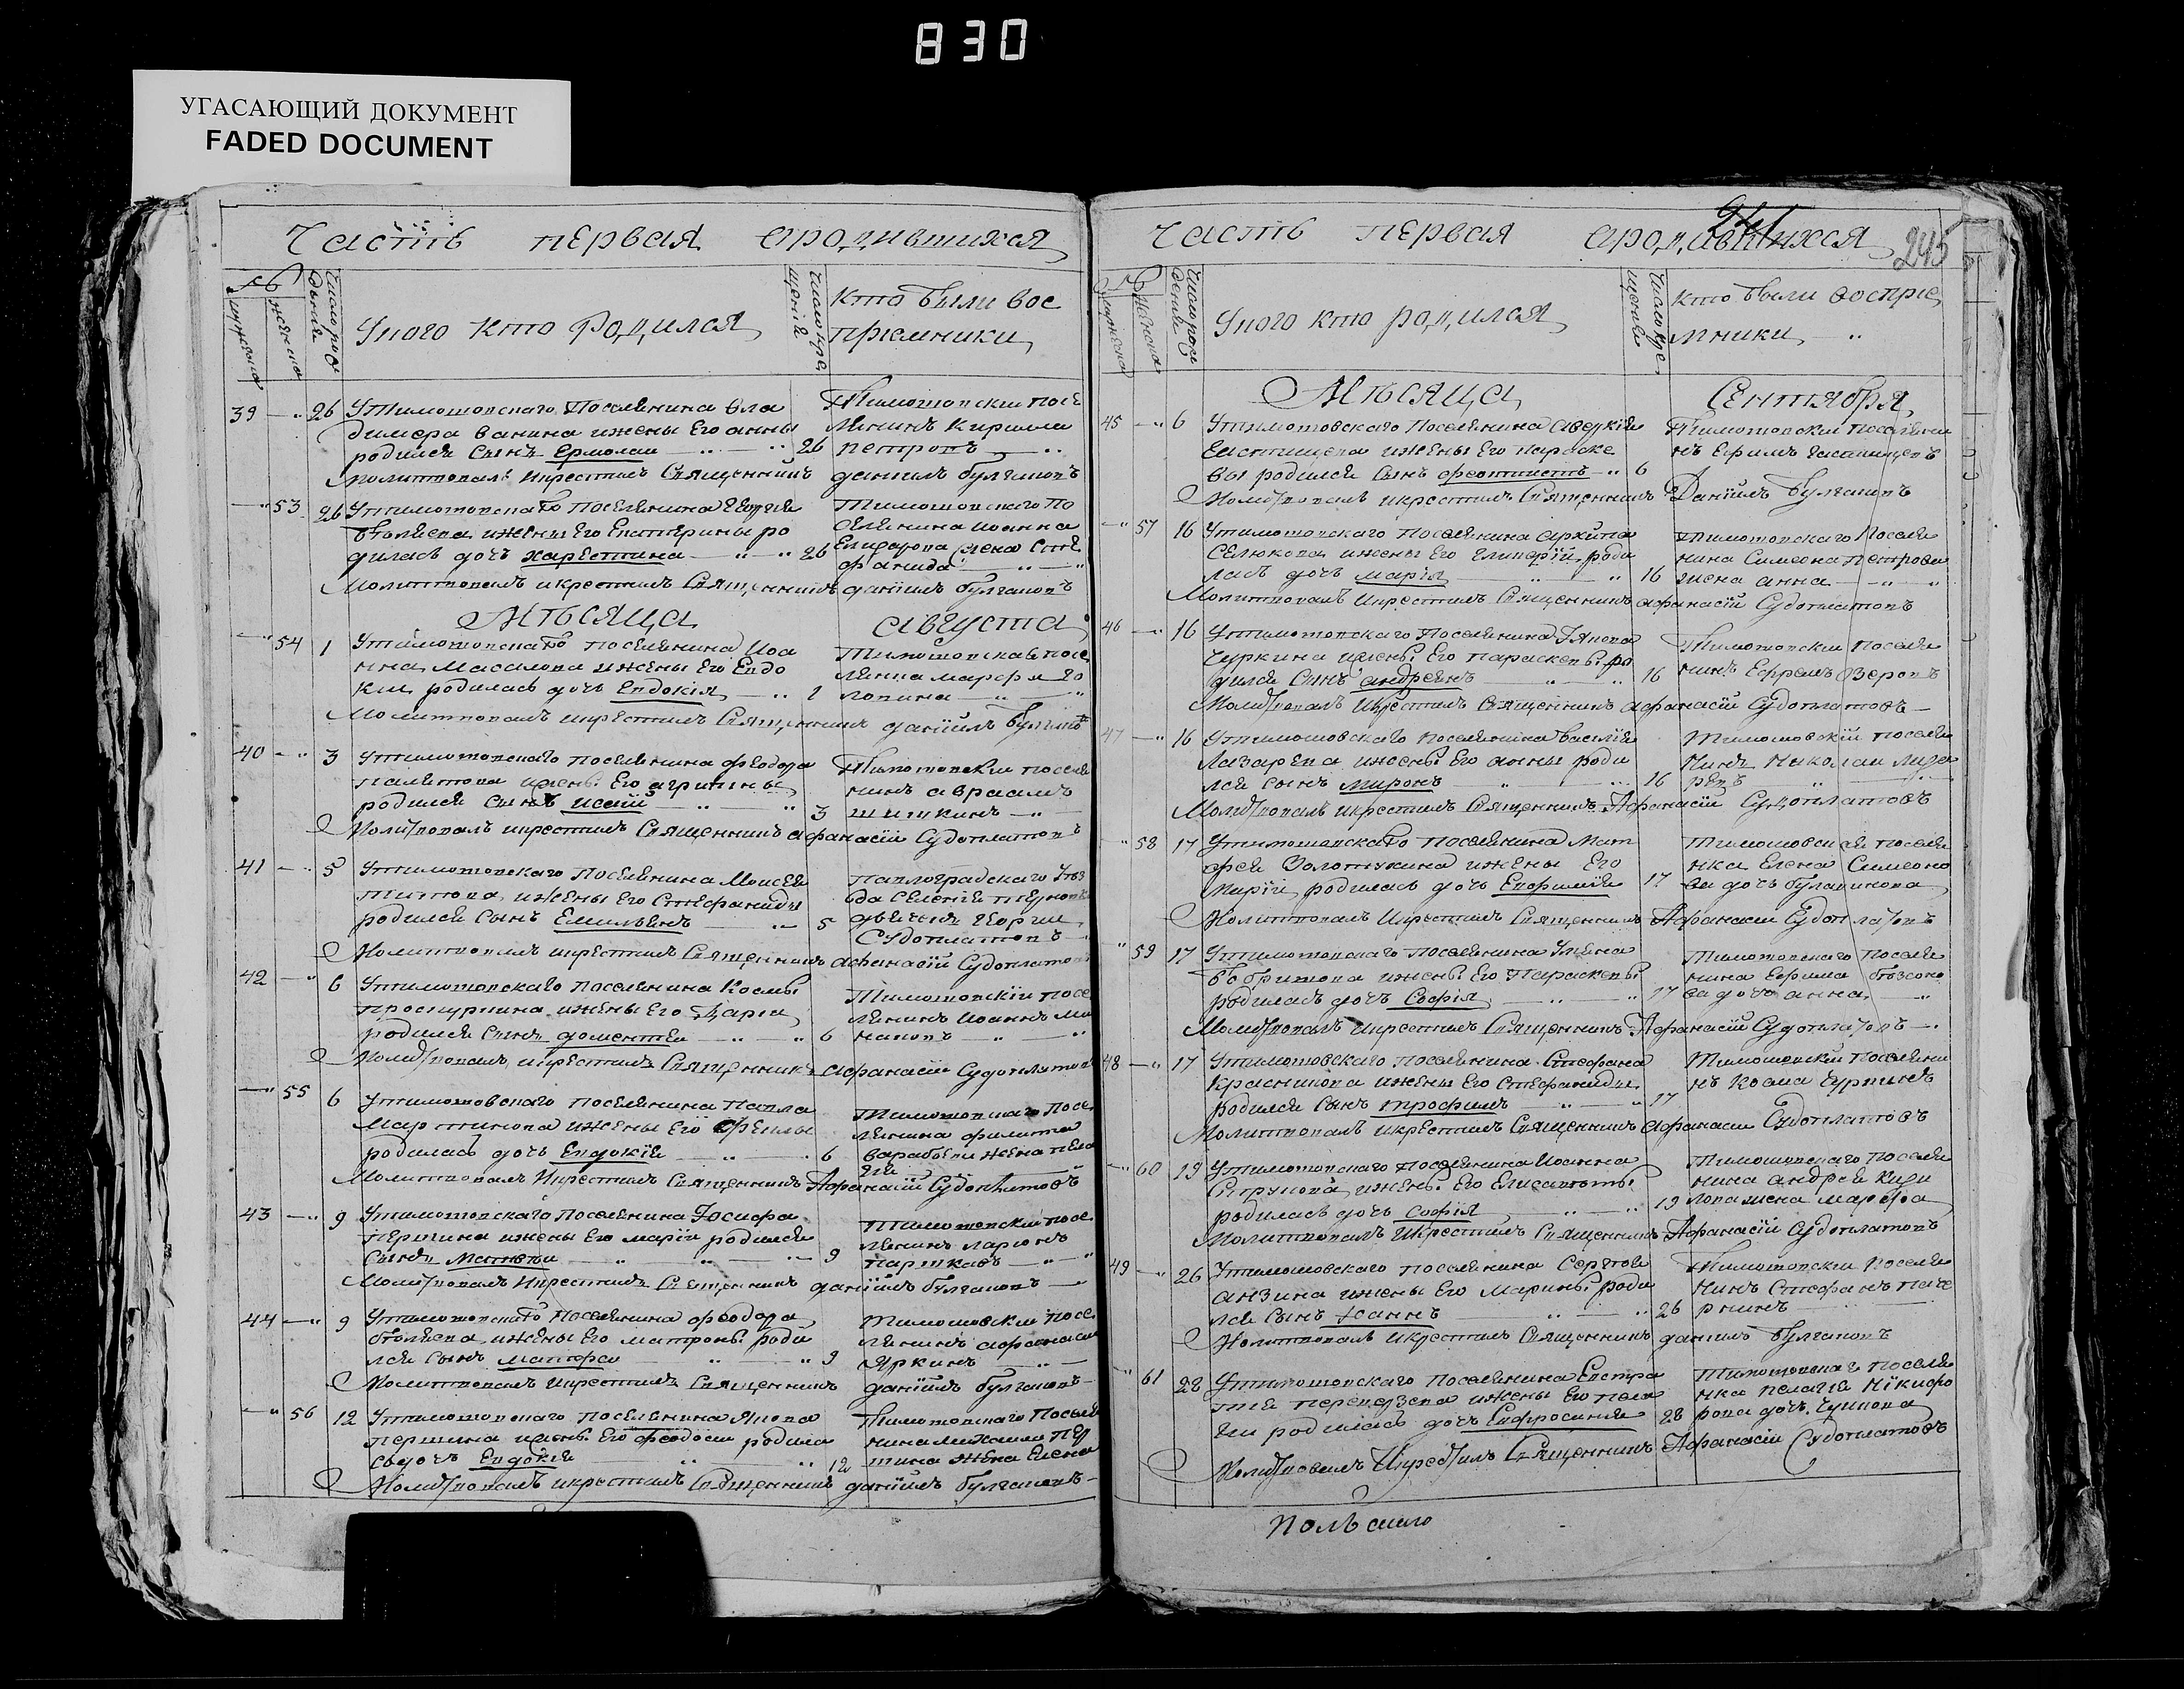 830
УГАСАЮЩИЙ ДОКУМЕНТ
FADED DOCUMENT
Часть первая ородившихся
№
мужеска
женска
Число рож
дения
Уного кто родился
Число кре
щения
кто были вос
приемники
39 26 Утимошовскаго Поселянина Вла
димера Ванина ижены Его анны
родился Сынъ Ермолаи 26
Тимошовскии посе
лянинъ Кирилла
петровъ
молитвовалъ икрестилъ Священникъ даниилъ булгаковъ
53 26 Утимошовскаго поселянина Георгия
ижены Его Екатерины ро
дилась дочъ харестина 26
Тимошовскаго по
селянина иоанна
Елизарова жена Сте
фанида
Молитвовалъ икрестилъ Священникъ даниилъ булгаковъ
Мѣсяца августа
54 1 Утимошовскаго поселянина Иоа
нна Масалова ижены Его Евдо
кии родилась дочъ Евдокия 1
Тимошовская посе
лянка марфа
лопина
Молитвовалъ икрестилъ Священникъ даниилъ
40 3 Утимошовскаго поселянина феодора
ижены Его агрипины
родился Сынъ исаий 3
Тимошовскии поселя
нинъ авраамъ
шишкинъ
Молитвовалъ икрестилъ Священникъ афанасий Судоплатовъ
41 5 Утимошовскаго поселянина Моисея
Титова ижены Его Стефаниды
родился Сынъ Емильянъ 5
павлоградскаго уез
да Селения
Георгии
Судоплатовъ
Молитвовалъ икрестилъ Священникъ афанасий Судоплатовъ
42 6 Утимошовскаго поселянина Космы
проскурнина ижены Его Дарии
родился Сынъ доментеи 6
Тимошовский посе
лянинъ Иоаннъ Ма
наковъ
Молитвовалъ икрестилъ Священникъ афанасий Судоплатовъ
55 6 Утимошовскаго поселянина павла
Мартинова ижены Его феклы
родилась дочъ Евдокия 6
Тимошовскаго посе
лянина филипа
варабьева жена пела
гея
Молитвовалъ Икрестилъ Священникъ Афанасий Судоплатовъ
43 9 Утимошовскаго поселянина Иосифа
першина ижены Его марии родился
Сынъ Матвеи 9
Тимошовскии посе
лянинъ ларионъ
Молитвовалъ Икрестилъ Священникъ даниилъ булгаковъ
44 9 Утимошовскаго поселянина феодора
ижены Его матроны роди
лся Сынъ 9
Тимошовскии посе
лянинъ афанасии
Яркинъ
Молитвовалъ Икрестилъ Священникъ даниилъ булгаковъ
56 12 Утимошовскаго поселянина Якова
першина ижены Его феодосии родила
сьдочъ Евдокия 12
Тимошовскаго поселя
нина михаила пер
шина жена Елена
Молитвовалъ икрестилъ Священникъ даниилъ булгаковъ
Часть первая ородившихся
241
245
№
мужеска
женска
Число рож
дения
Уного кто родился
Число кре
щения
кто были воспрiе
мники
Мѣсяца Сентября
45 6 Утимошовскаго Поселянина Аверкия
Гастищева ижены Его параске
вы родился Сынъ феоктистъ 6
Тимошовскии поселяни
нъ Ефимъ Гастищевъ
Молитвовалъ икрестилъ Священникъ Даниилъ Булгаковъ
57 16 Утимошовскаго поселянина архипа
Селюкова ижены Его гликерии роди
лась дочъ мария 16
Тимошовскаго Поселя
нина Симеона петрова
жена анна
Молитвовалъ Икрестилъ Священникъ афанасий Судоплатовъ
46 16 Утимошовскаго поселянина Iякова
Чуркина ижены Его параскевы ро
дился Сынъ андреянъ 16
Тимошовскии поселя
нинъ Ефремъ Озеровъ
Молитвовалъ Икрестилъ Священникъ афанасий Судоплатовъ
47 16 Утимошовскаго поселянина василия
Лазарева ижены Его анны роди
лся Сынъ миронъ 16
Тимошовский поселя
нинъ Николаи лаза
ревъ
Молитвовалъ икрестилъ Священникъ Афанасий Судоплатовъ
58 17 Утимошовскаго поселянина Мат
фея Золотухина ижены Его
марий родилась дочъ Евфимия 17
Тимошовская поселя
нка Елена Симеоно
ва дочъ булавинова
Молитвовалъ Икрестилъ Священникъ Афанасии Судоплатовъ
59 17 Утимошовскаго поселянина
Бобритова ижены Его Параскевы
родилась дочъ София 17
Тимошовскаго поселя
нина Ефима
ва дочъ анна
Молитвовалъ икрестилъ Священникъ Афанасий Судоплатовъ
48 17 Утимошовскаго поселянина Стефана
Красникова ижены Его Стефаниды
родился Сынъ трофимъ 17
Тимошовскии поселяни
нъ козма Чуркинъ
Молитвовалъ икрестилъ Священникъ афанасии Судоплатовъ
60 19 Утимошовскаго поселянина Иоанна
Струкова ижены Его Елисаветы
родилась дочъ София 19
Тимошовскаго поселя
нина андрея Кири
лова жена марфа
Молитвовалъ икрестилъ Священникъ Афанасий Судоплатовъ
49 26 Утимошовскаго поселянина Сергия
анзина ижены Его Марины роди
лся Сынъ Иоаннъ 26
Тимошовскии поселя
нинъ Стефанъ
Молитвовалъ икрестилъ Священникъ даниилъ Булгаковъ
61 28 Утимошовскаго поселянина Евстра
тия ижены Его пела
геи родилась дочъ Евфросиния 28
Тимошовская поселя
нка пелагия Никифо
рова дочъ
Молитвовалъ Икрестилъ Священникъ Афанасии Судоплатовъ